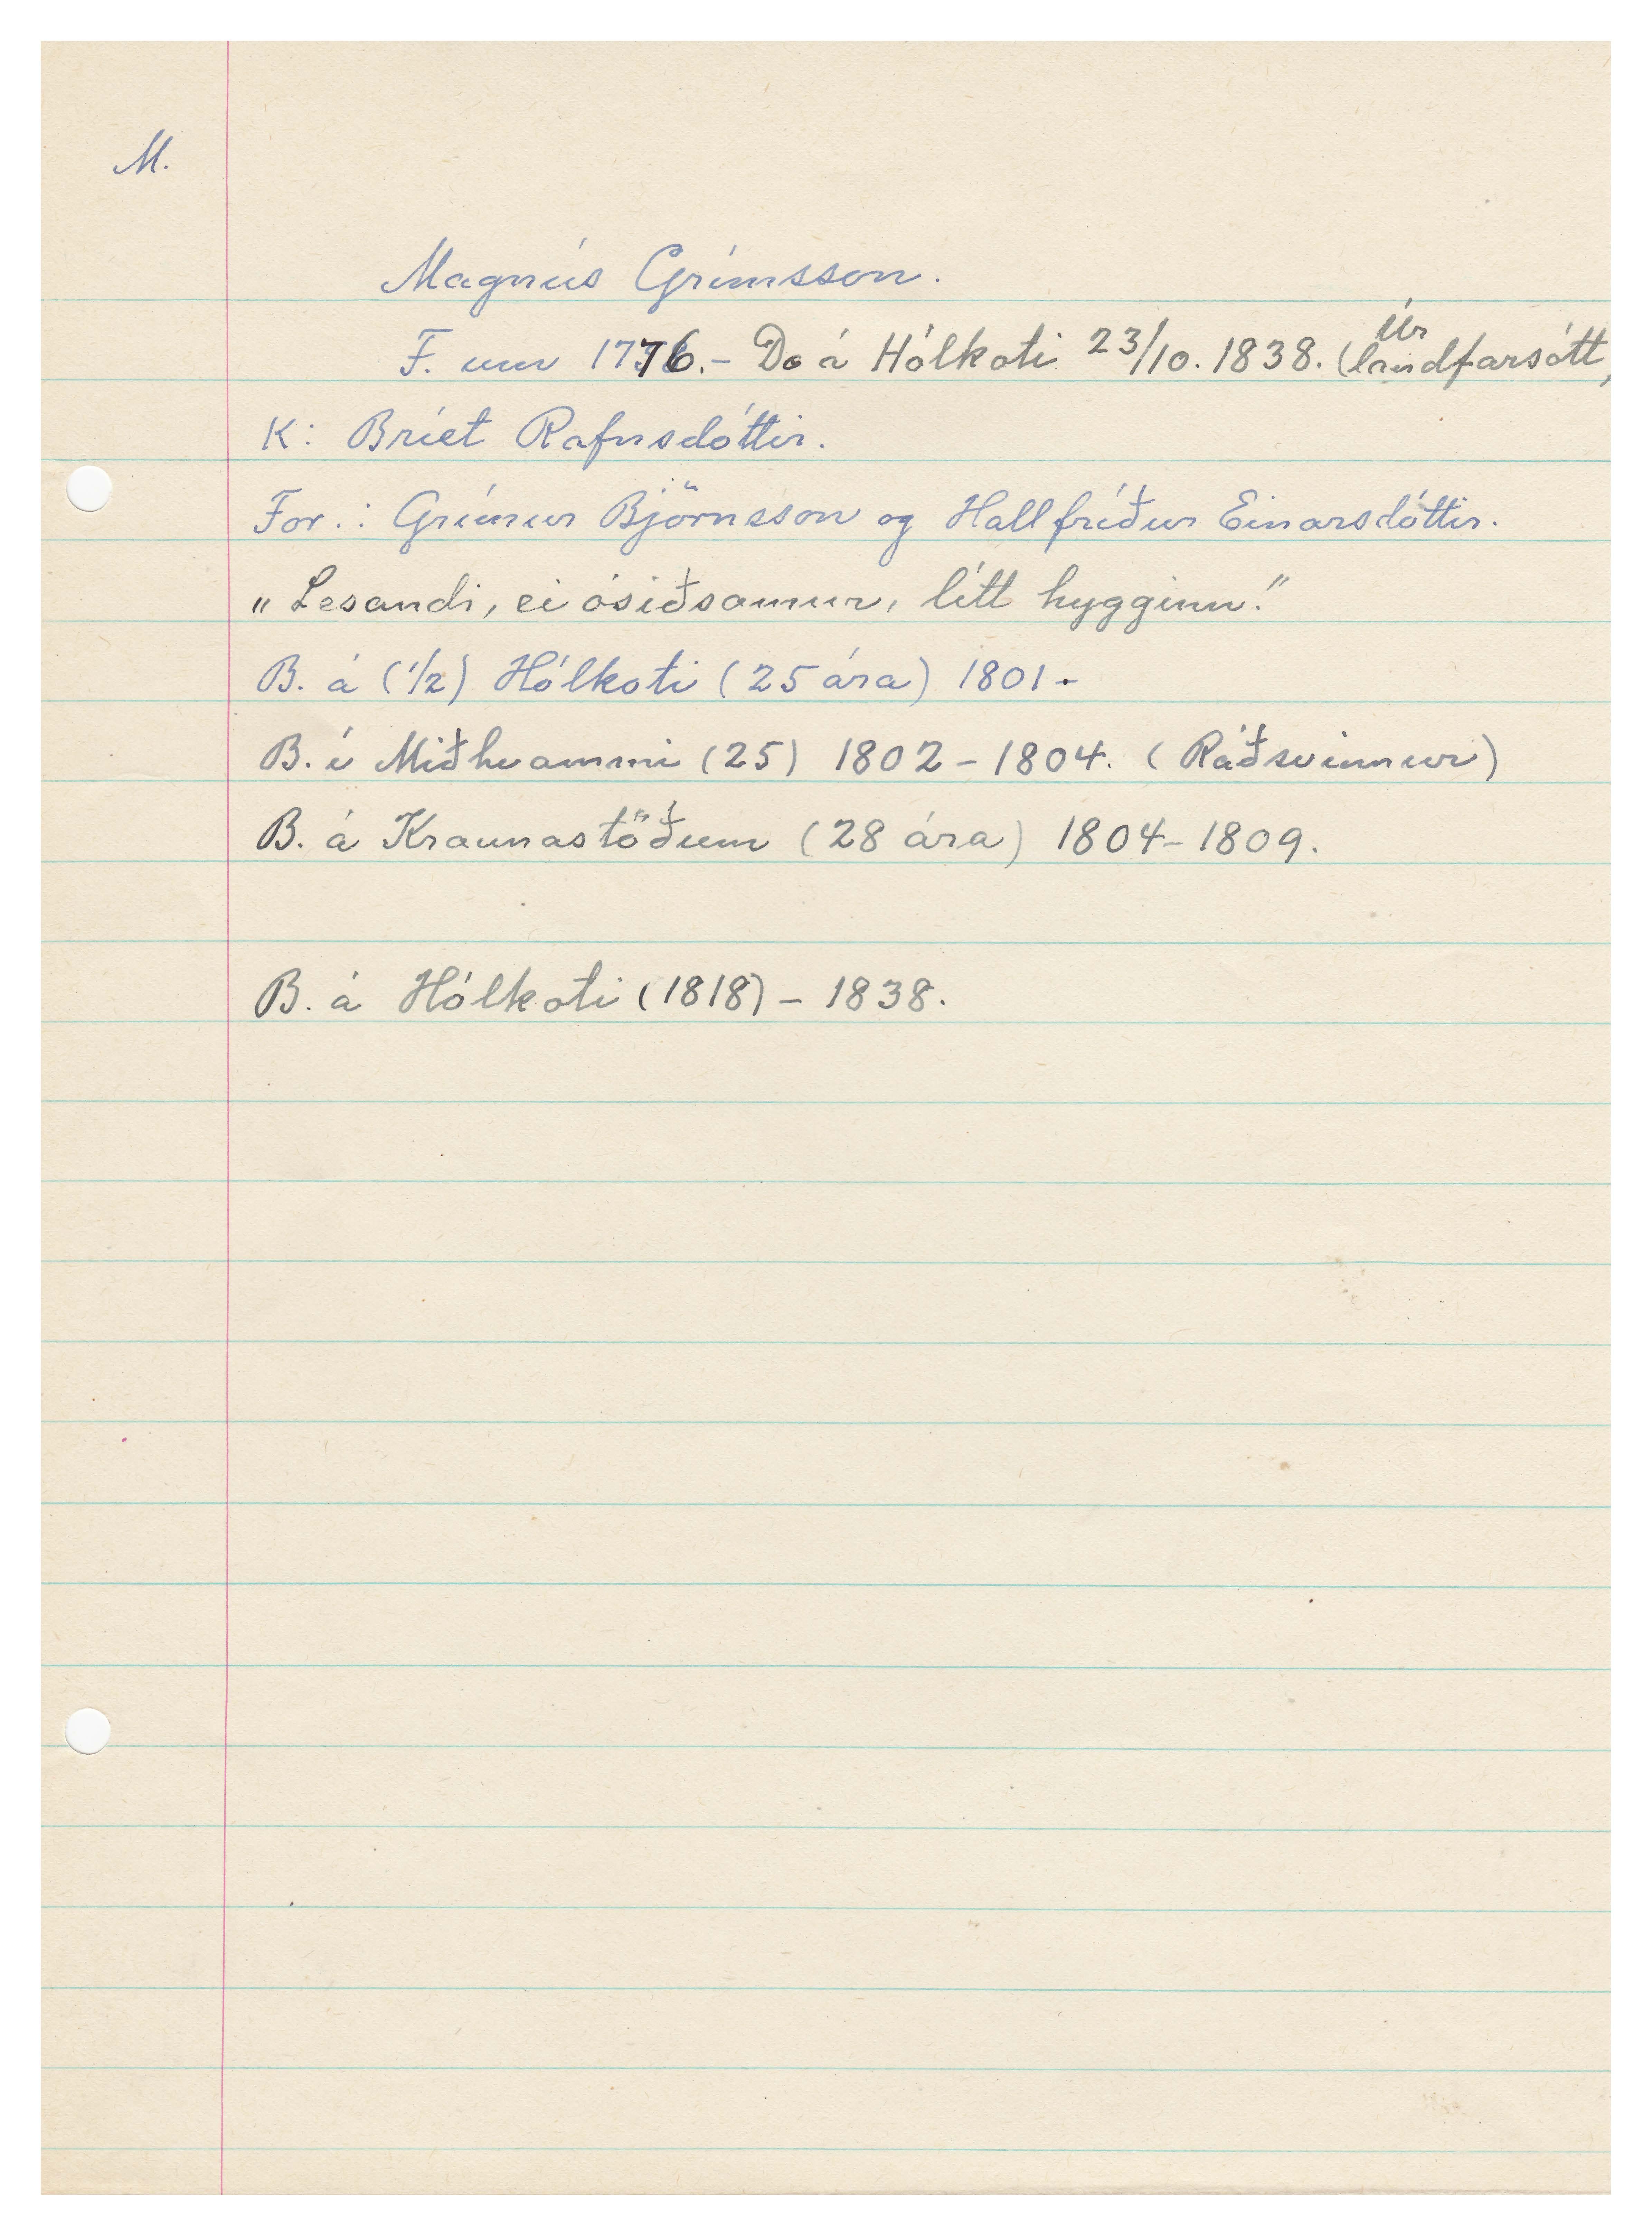 M.
Magnús Grímsson.
F. um 1776. - Do á Hólkoti 23/10. 1838. (Úr landfarsótt,
K: Bríet Rafnsdóttir.
For.: Grímur Björnsson og Hallfríður Einarsdóttir.
„Lesandi, ei ósiðsamur, lítt hygginn."
B. á (1/2) Hólkoti (25 ára) 1801 -
B. í Miðhvammi (25) 1802 - 1804. (Ráðsvinnur)
B. á Kraunastöðum (28 ára) 1804 - 1809.
B. á Hólkoti (1818) - 1838.